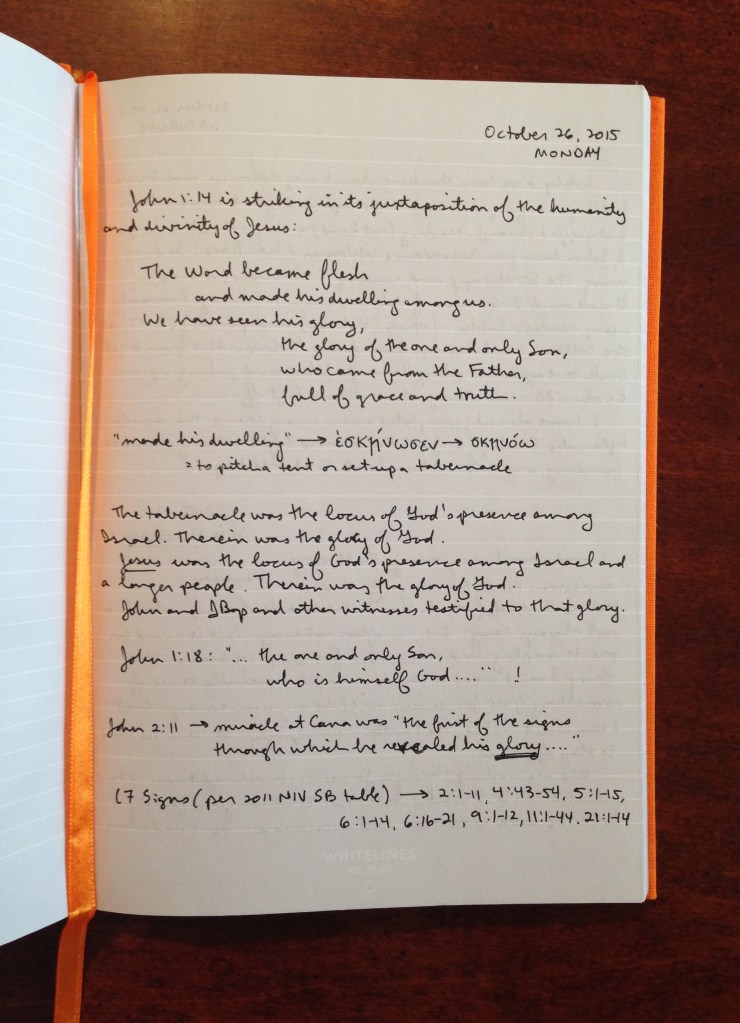 October 26, 2015
MONDAY
John 1:14 is striking in its juxtaposition of the humanity
and divinity of Jesus:
The Word became flesh
and made his dwelling among us.
We have seen his glory,
the glory of the one and only Son,
who came from the Father,
full of grace and truth.
"made his dwelling" → ἐσκήνωσεν → σκηνόω
= to pitch a tent or set up a tabernacle
The tabernacle was the locus of God's presence among
Israel. Therein was the glory of God.
Jesus was the locus of God's presence among Israel and
a larger people. Therein was the glory of God.
John and JBap and other witnesses testified to that glory.
John 1:18: "... the one and only Son,
who is himself God...." !
John 2:11 → miracle at Cana was "the first of the signs
through which he revealed his glory...."
(7 Signs (per 2011 NIV SB table) → 2:1-11, 4:43-54, 5:1-15,
6:1-14, 6:16-21, 9:1-12, 11:1-44, 21:1-14
WHITELINES